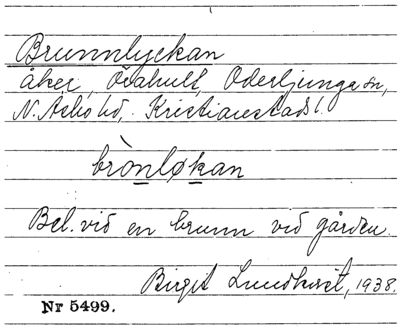 Brunnlyckan
åker, Örahult, Oderljunga sn,
N. Åsbo hd, Kristianstads l.
brònløkan
Bel. vid en brunn vid gården.
Birgit Lundkvist, 1938.
Nr 5499.